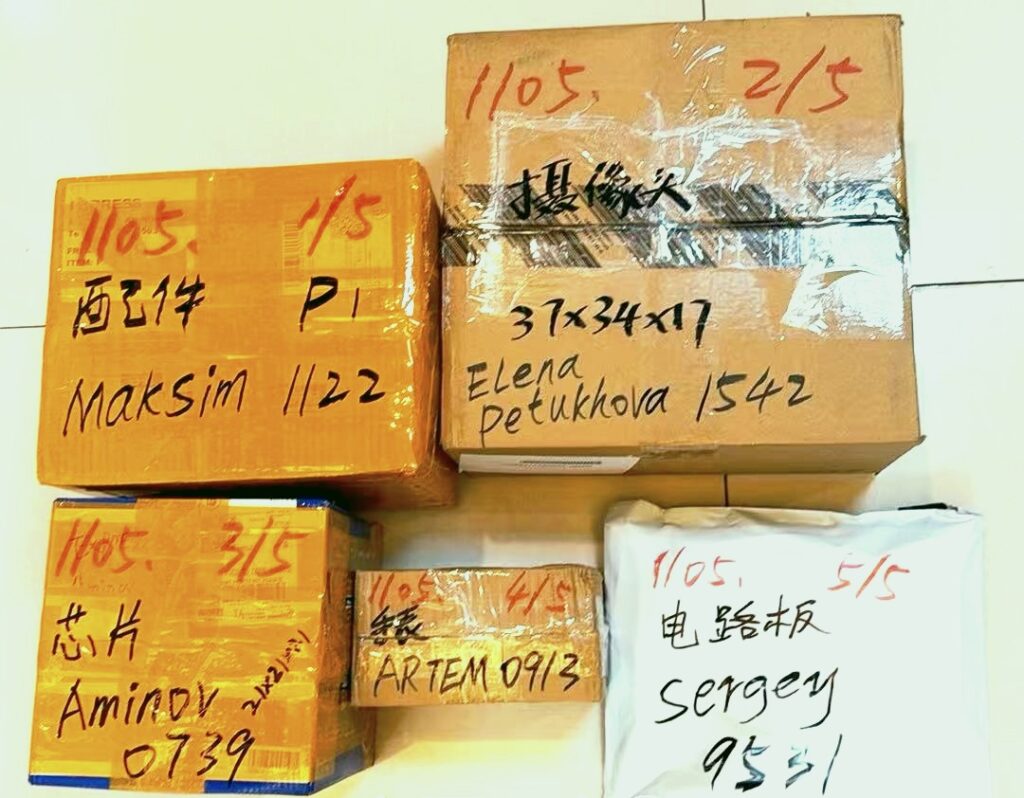 1105. 1/5
配件 P1
Maksim 1122
1105. 2/5
摄像头
37x34x17
Elena
Petukhova 1542
1105. 3/5
芯片
Aminov
0739
1105. 4/5
ARTEM 0913
1105. 5/5
电路板
Sergey
9531